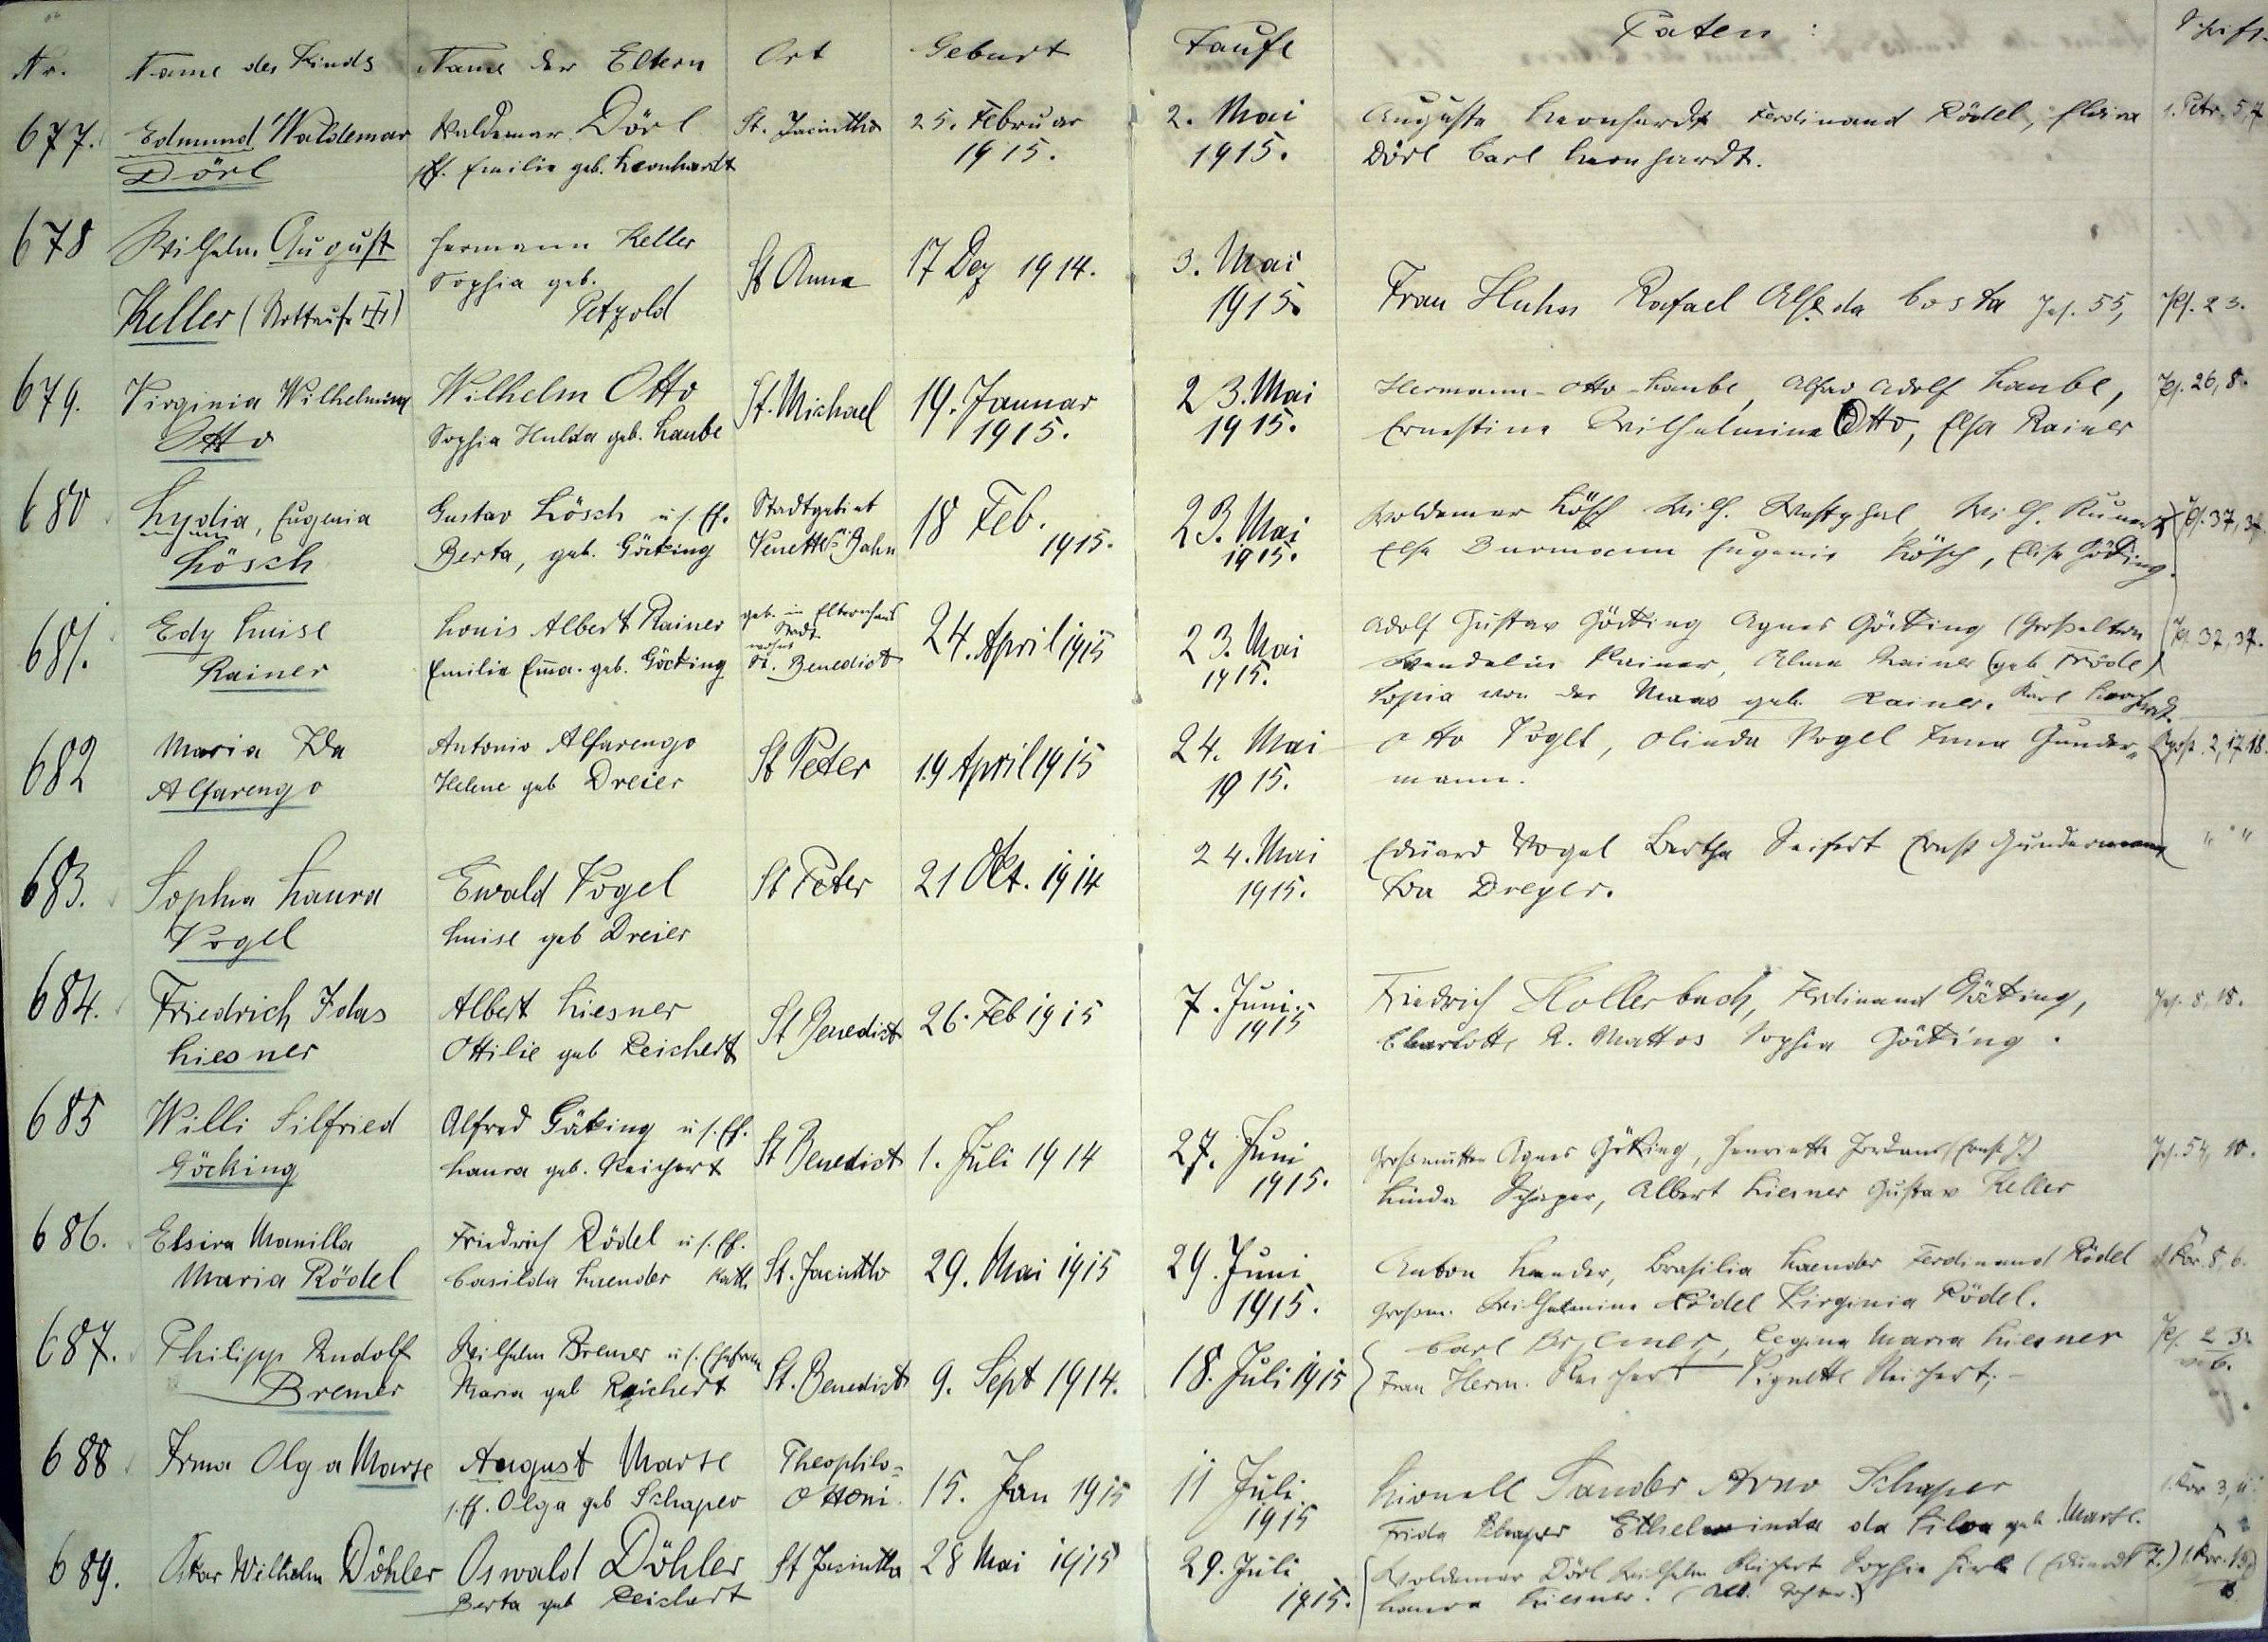 Nr. Name des Kinds Name der Eltern Ort Geburt Taufe Paten: Schift.
677. Edmund Waldemar Waldemar Dörl St. Jacintho 25. Februar 2. Mai Auguste Leonhardt Ferdinand Rödel, Elvira 1. Petr. 5,7
Dörl Emilie geb. Leonhardt 1915. 1915. Dörl Carl Leonhardt.
678 Wilhelm August Hermann Keller St Anna 17 Dez 1914. 3. Mai
Sophia geb. 1915. Frau Huhn Rafael Alf. da Costa Jes. 55, Ps. 23.
Keller (Nottaufe) Petzold
679. Virginia Wilhelmina Wilhelm Otto St. Michael 19. Januar 23. Mai Hermann-Otto-Laube, Adolf Laube, Ps. 26,8.
Otto Sophia Hulda geb. Laube 1915. 1915. Ernestine Wilhelmine Otto, Elsa Rainer
680 Lydia, Eugenia Gustav Lösch u. s. Ef. Stadtgebiet 18 Feb. 23. Mai Woldemar Lösch Wilh. Westphal, Wilh. Ps. 37,37.
Lösch Berta, geb. Göcking Bahn 1915. 1915. Else Burmann Eugenie Lösch, Elise Göcking.
681. Edy Luise Louis Albert Rainer geb. in Elternhaus Stadt 24. April 1915 23. Mai Adolf Gustav Göcking Agnes Göcking (Großeltern Ps. 37,37.
Rainer Emilie Emma geb. Göcking St. Benedict 1915. Wendelin Rainer, Alma Rainer (geb.
Sopia von der Maas geb. Rainer. Karl
682 Maria Ida Antonio Alfarengo St Peter 19 April 1915 24. Mai Otto Vogel, Olinda Vogel Gunder- 2, 17.18.
Alfarengo Helene geb Dreier 1915. mann.
683. Sophia Laura Ewald Vogel St Peter 21 Okt. 1914 24. Mai Eduard Vogel Bertha Seifert Ernst Gundermann " " "
Vogel Luise geb Dreier 1915. Ida Dreyer.
684. Friedrich Idas Albert Liesner St Benedict 26. Feb 1915 7. Juni Friedrich Hollerbach, Ferdinand Göcking, Jes. 8,18.
Liesner Ottilie geb Reichert 1915 Charlotte R. Mattos Sophia Göcking.
685 Willi Silfried Alfred Göcking u. s. Ef. St Benedict 1. Juli 1914 27. Juni Großmutter Agnes Göcking, Henriette Jordans (Ernst J.) Jes. 54, 10.
Göcking Laura geb. Reichert 1915. Linda Schaper, Albert Liesner Gustav Keller
686. Elsira Manilla Friedrich Rödel u. s. Ef. St. Jacintho 29. Mai 1915 29. Juni Anton Laender, Brasilia Laender Ferdinand Rödel Kor. 8, 6.
Maria Rödel Casilda Laender Kath. 1915. Großm. Wilhelmine Rödel Virginia Rödel.
687. Philipp Rudolf Wilhelm Bremer u. s. Ehefrau St. Benedict 9. Sept 1914. 18. Juli 1915 Carl Bremer, Regina Maria Liesner Ps. 23.
Bremer Maria geb Reichert Frau Herm. Reichert Reichert; 6.
688 Irma Olga Marse August Marse Theophilo- 15. Jan 1915 11 Juli Lionell Sander Arno Schaper 1. Kor 3, 11
s. Ef. Olga geb Schaper Ottoni. 1915 Frida Schaper Ethelwinda da Silva geb. Marse.
689. Oskar Wilhelm Döhler Oswald Döhler St Jacintho 28 Mai 1915 29. Juli Woldemar Dörl Wilhelm Reichert Sophia 1. Kor.
Berta geb Reichert 1915. Laura Liesner.